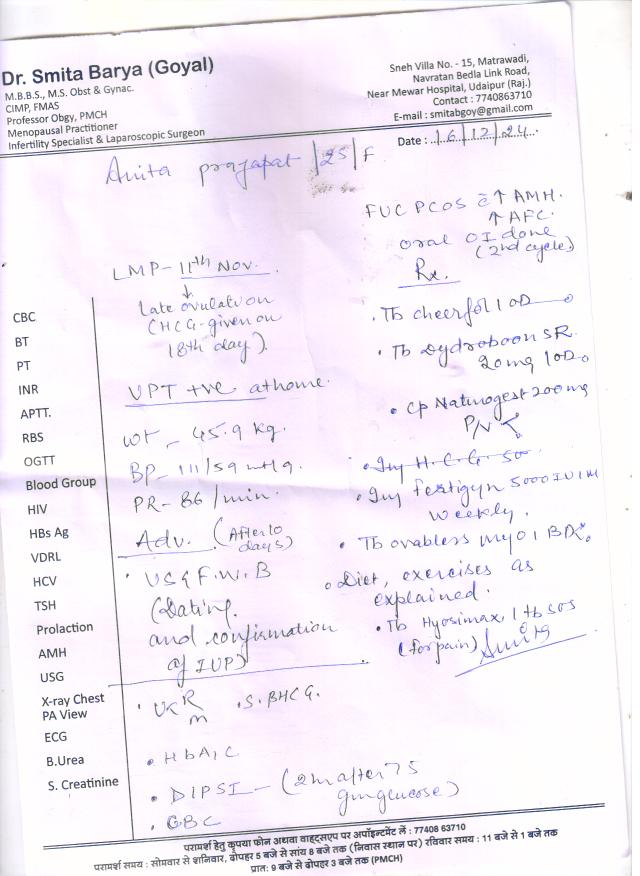 Dr. Smita Barya (Goyal)
M.B.B.S., M.S. Obst & Gynac.
CIMP, FMAS
Professor Obgy, PMCH
Menopausal Practitioner
Infertility Specialist & Laparoscopic Surgeon
Sneh Villa No. - 15, Matrawadi,
Navratan Bedla Link Road,
Near Mewar Hospital, Udaipur (Raj.)
Contact : 7740863710
E-mail : smitabgoy@gmail.com
Date : 16/12/24
Anita prajapat /25/F
FUC PCOS c̄ ↑ AMH.
↑ AFC.
oral OI done
(2nd cycle)
LMP - 11th Nov.
↓
late ovulation
(HCG-given on
18th day).
UPT +ve at home.
wt - 45.9 kg.
BP - 111/59 mmHg.
PR - 86/min.
Adv. (After 10
days)
• USG F.W.B
(Dating
and confirmation
of IUP)
• UR
M
• S. BHCG.
• HbA1C
• DIPSI - (2h after 75
gm glucose)
• CBC
Rx.
• Tb cheerfol 1 OD
• Tb Dydroboon SR
20mg 1 OD
• Cp Naturogest 200mg
P/V
• Inj H.C.G. 50
• Inj fertigyn 5000 IU IM
weekly.
• Tb ovabless myo 1 BD
• Diet, exercises as
explained.
• Tb Hyosimax 1 tb SOS
(for pain)
Smita
CBC
BT
PT
INR
APTT.
RBS
OGTT
Blood Group
HIV
HBs Ag
VDRL
HCV
TSH
Prolaction
AMH
USG
X-ray Chest
PA View
ECG
B.Urea
S. Creatinine
परामर्श हेतु कृपया फोन अथवा वाट्सएप पर अपॉइन्टमेंट लें : 77408 63710
परामर्श समय : सोमवार से शनिवार, दोपहर 5 बजे से सांय 8 बजे तक (निवास स्थान पर) रविवार समय : 11 बजे से 1 बजे तक
प्रात: 9 बजे से दोपहर 3 बजे तक (PMCH)